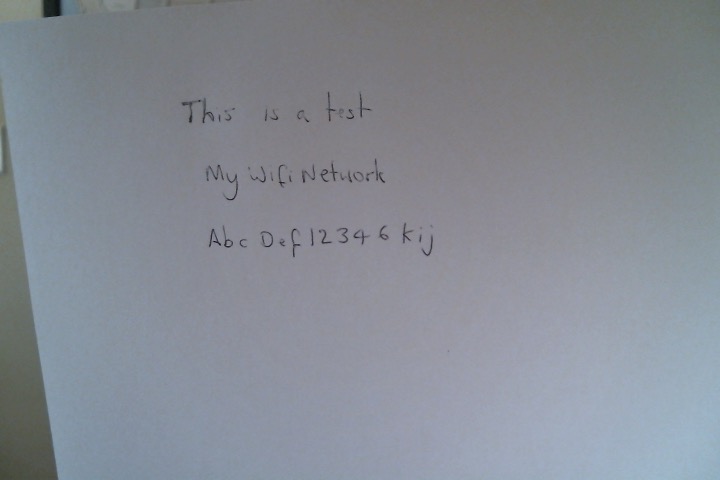 This is a test
My Wifi Network
Abc Def 12346 kij